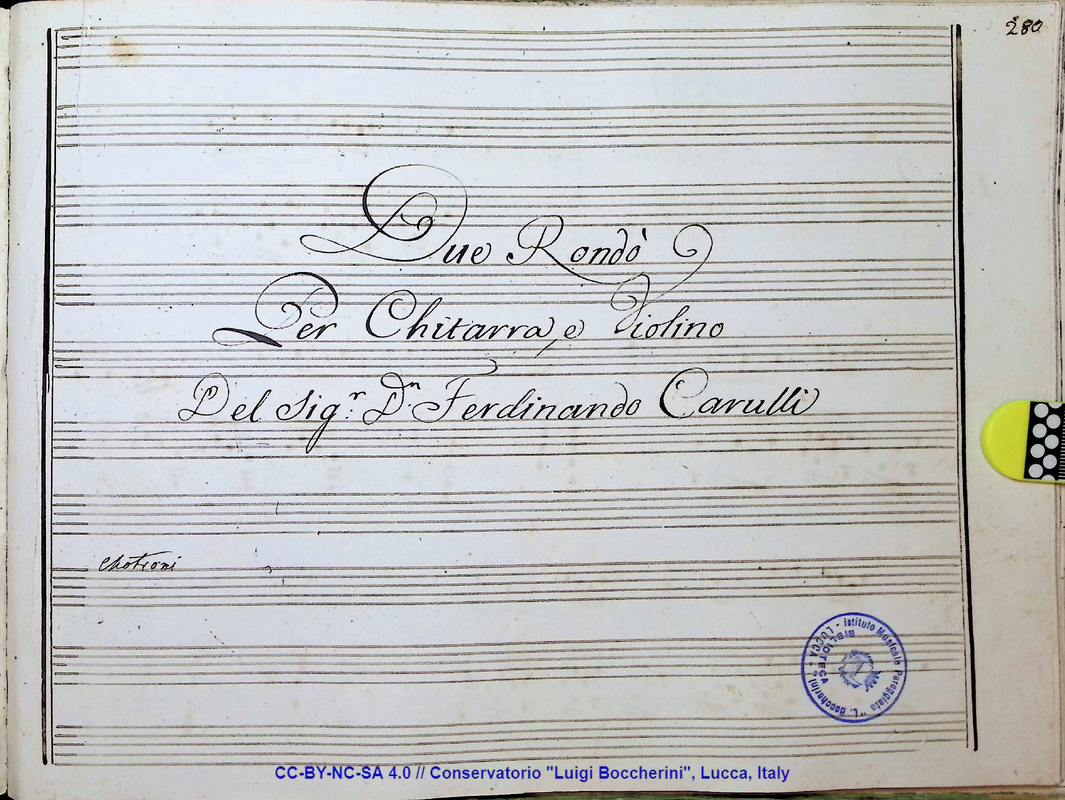 280
Due Rondò
Per Chitarra, e Violino
Del Sig.r D.n Ferdinando Carulli
Istituto Musicale Pareggiato "L. Boccherini" - LUCCA -
BIBLIOTECA
CC-BY-NC-SA 4.0 // Conservatorio "Luigi Boccherini", Lucca, Italy